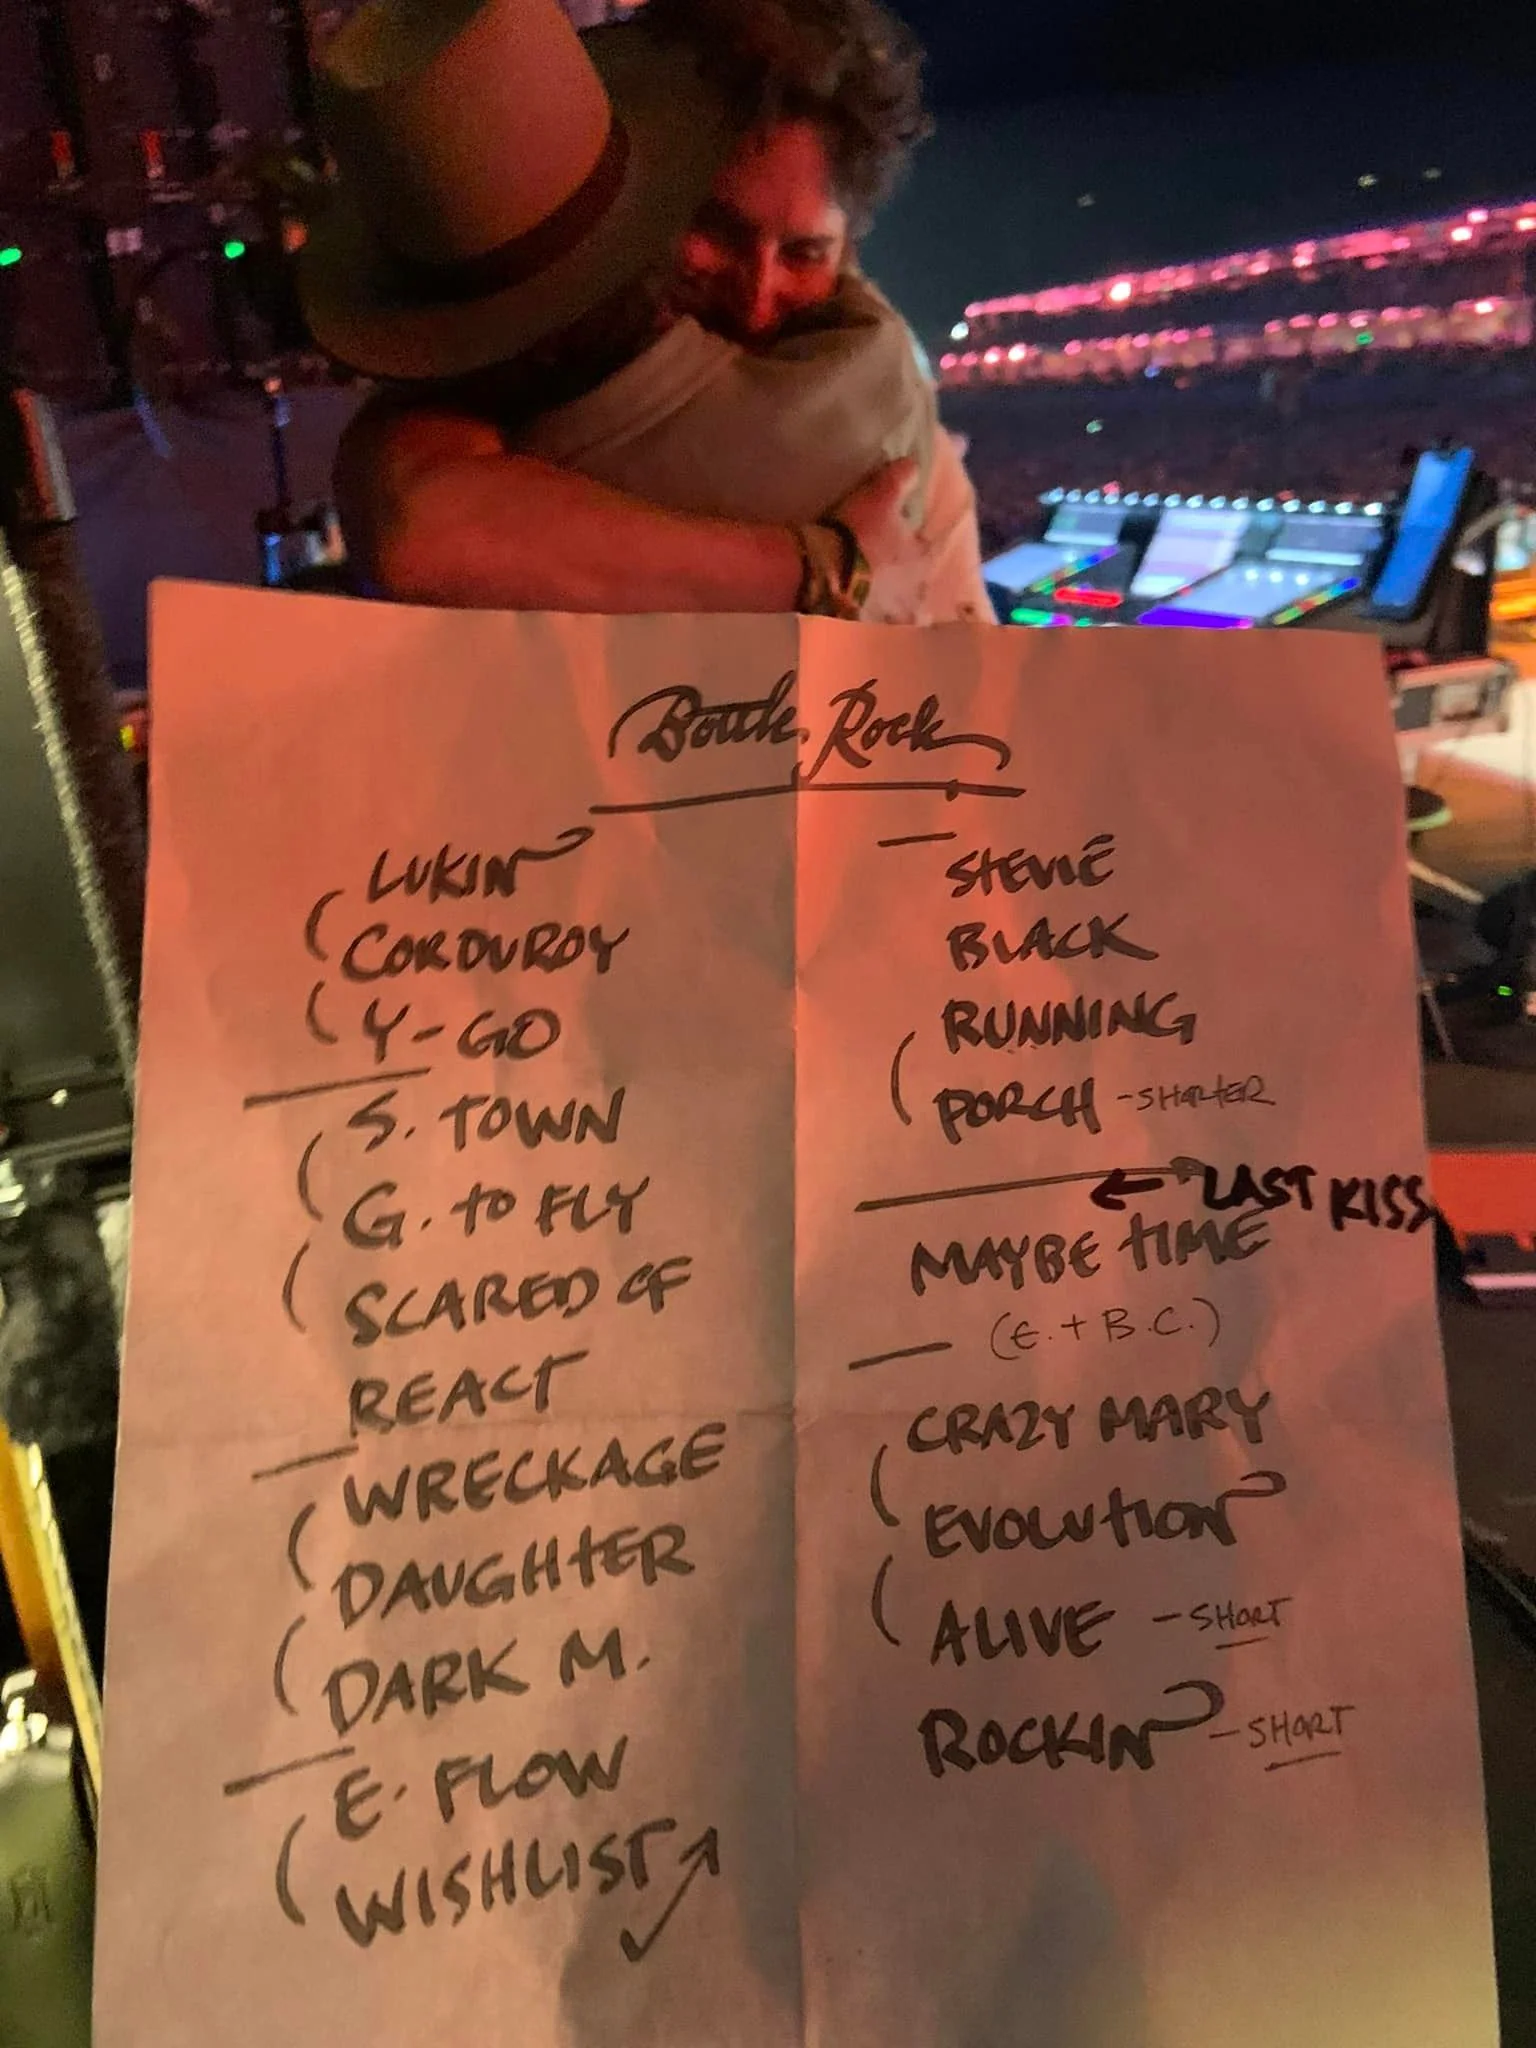 Bottle Rock
LUKIN
CORDUROY
Y-GO
S. TOWN
G. to FLY
SCARED OF
REACT
WRECKAGE
DAUGHTER
DARK M.
E. FLOW
WISHLIST
STEVIE
BLACK
RUNNING
PORCH - SHORTER
← LAST KISS
MAYBE TIME
(E. + B.C.)
CRAZY MARY
EVOLUTION
ALIVE - SHORT
ROCKIN - SHORT